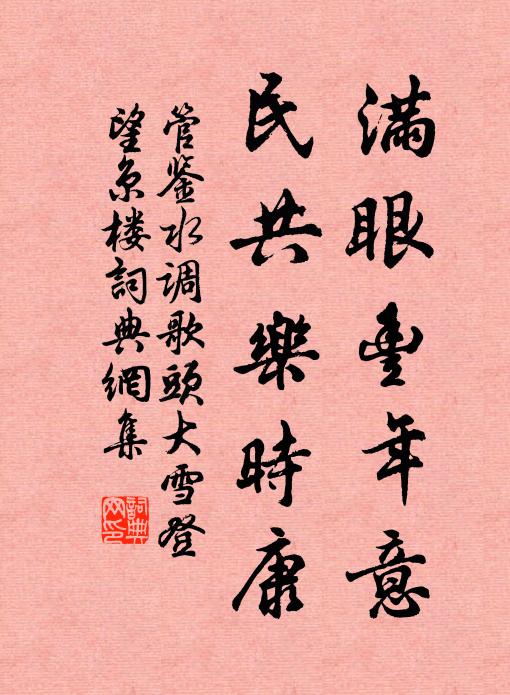 滿眼豐年意
民共樂時康
管鉴水调歌頭大雪登
望京楼詞典網集
詞典
网印